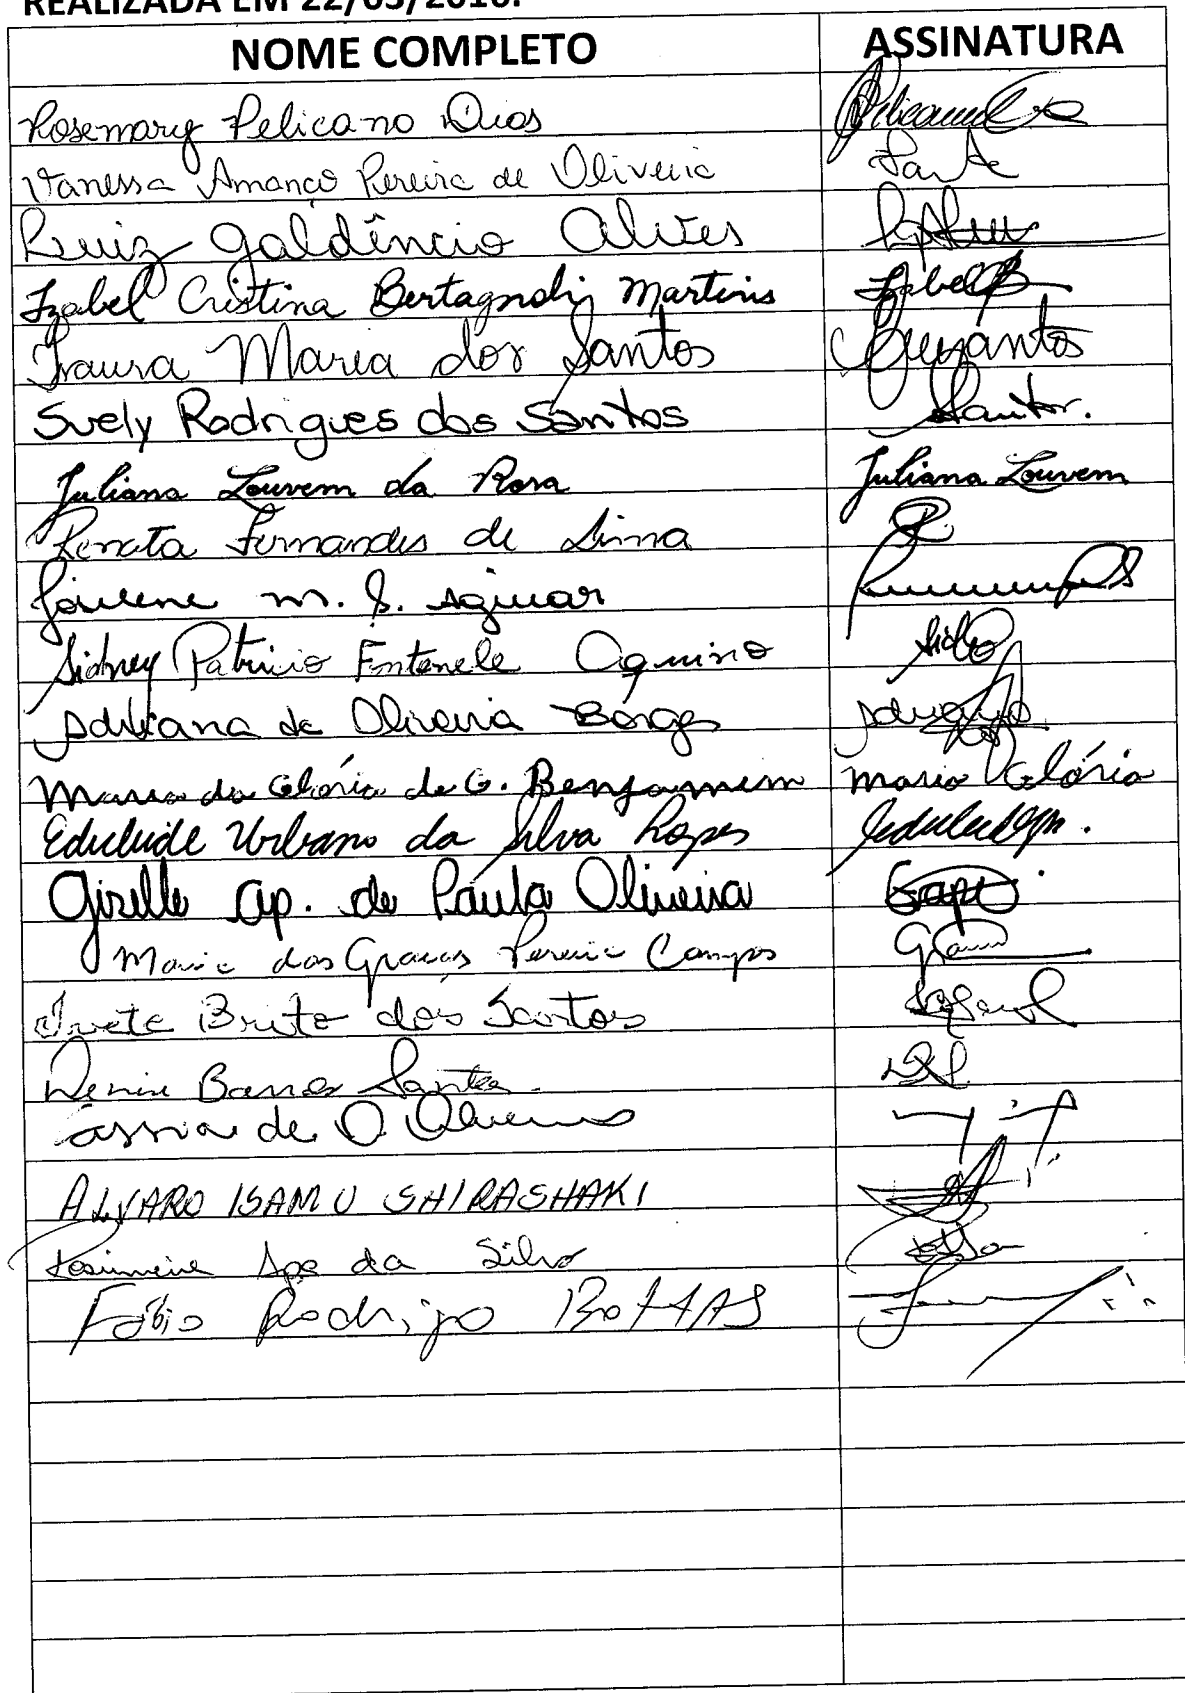 REALIZADA EM 22/03/2016.
NOME COMPLETO ASSINATURA
Rosemary Pelicano Dias
Vanessa Amanço Pereira de Oliveira
Luiz Galdêncio Alves
Izabel Cristina Bertagnoli Martins IzabelB
Maria dos Santos
Suely Rodrigues dos Santos Santos.
Juliana Louvem da Rosa Juliana Louvem
Renata Fernandes de Lima
m. S. Aguiar
Sidney Patricio Fontenele Aquino
Adriana de Oliveira Borges
Maria da Glória de G. Benjamim Maria Glória
Edicleide Urbano da Silva Lopes
Giselle Ap. de Paula Oliveira
Maria das Graças Pereira Campos
Ivete Brito dos Santos
Denise Barros Santos
Cassia de O. Oliveira
ALVARO ISAMU SHIRASHAKI
Rosimeire Apa da Silva
Fábio Rodrigo BottAS